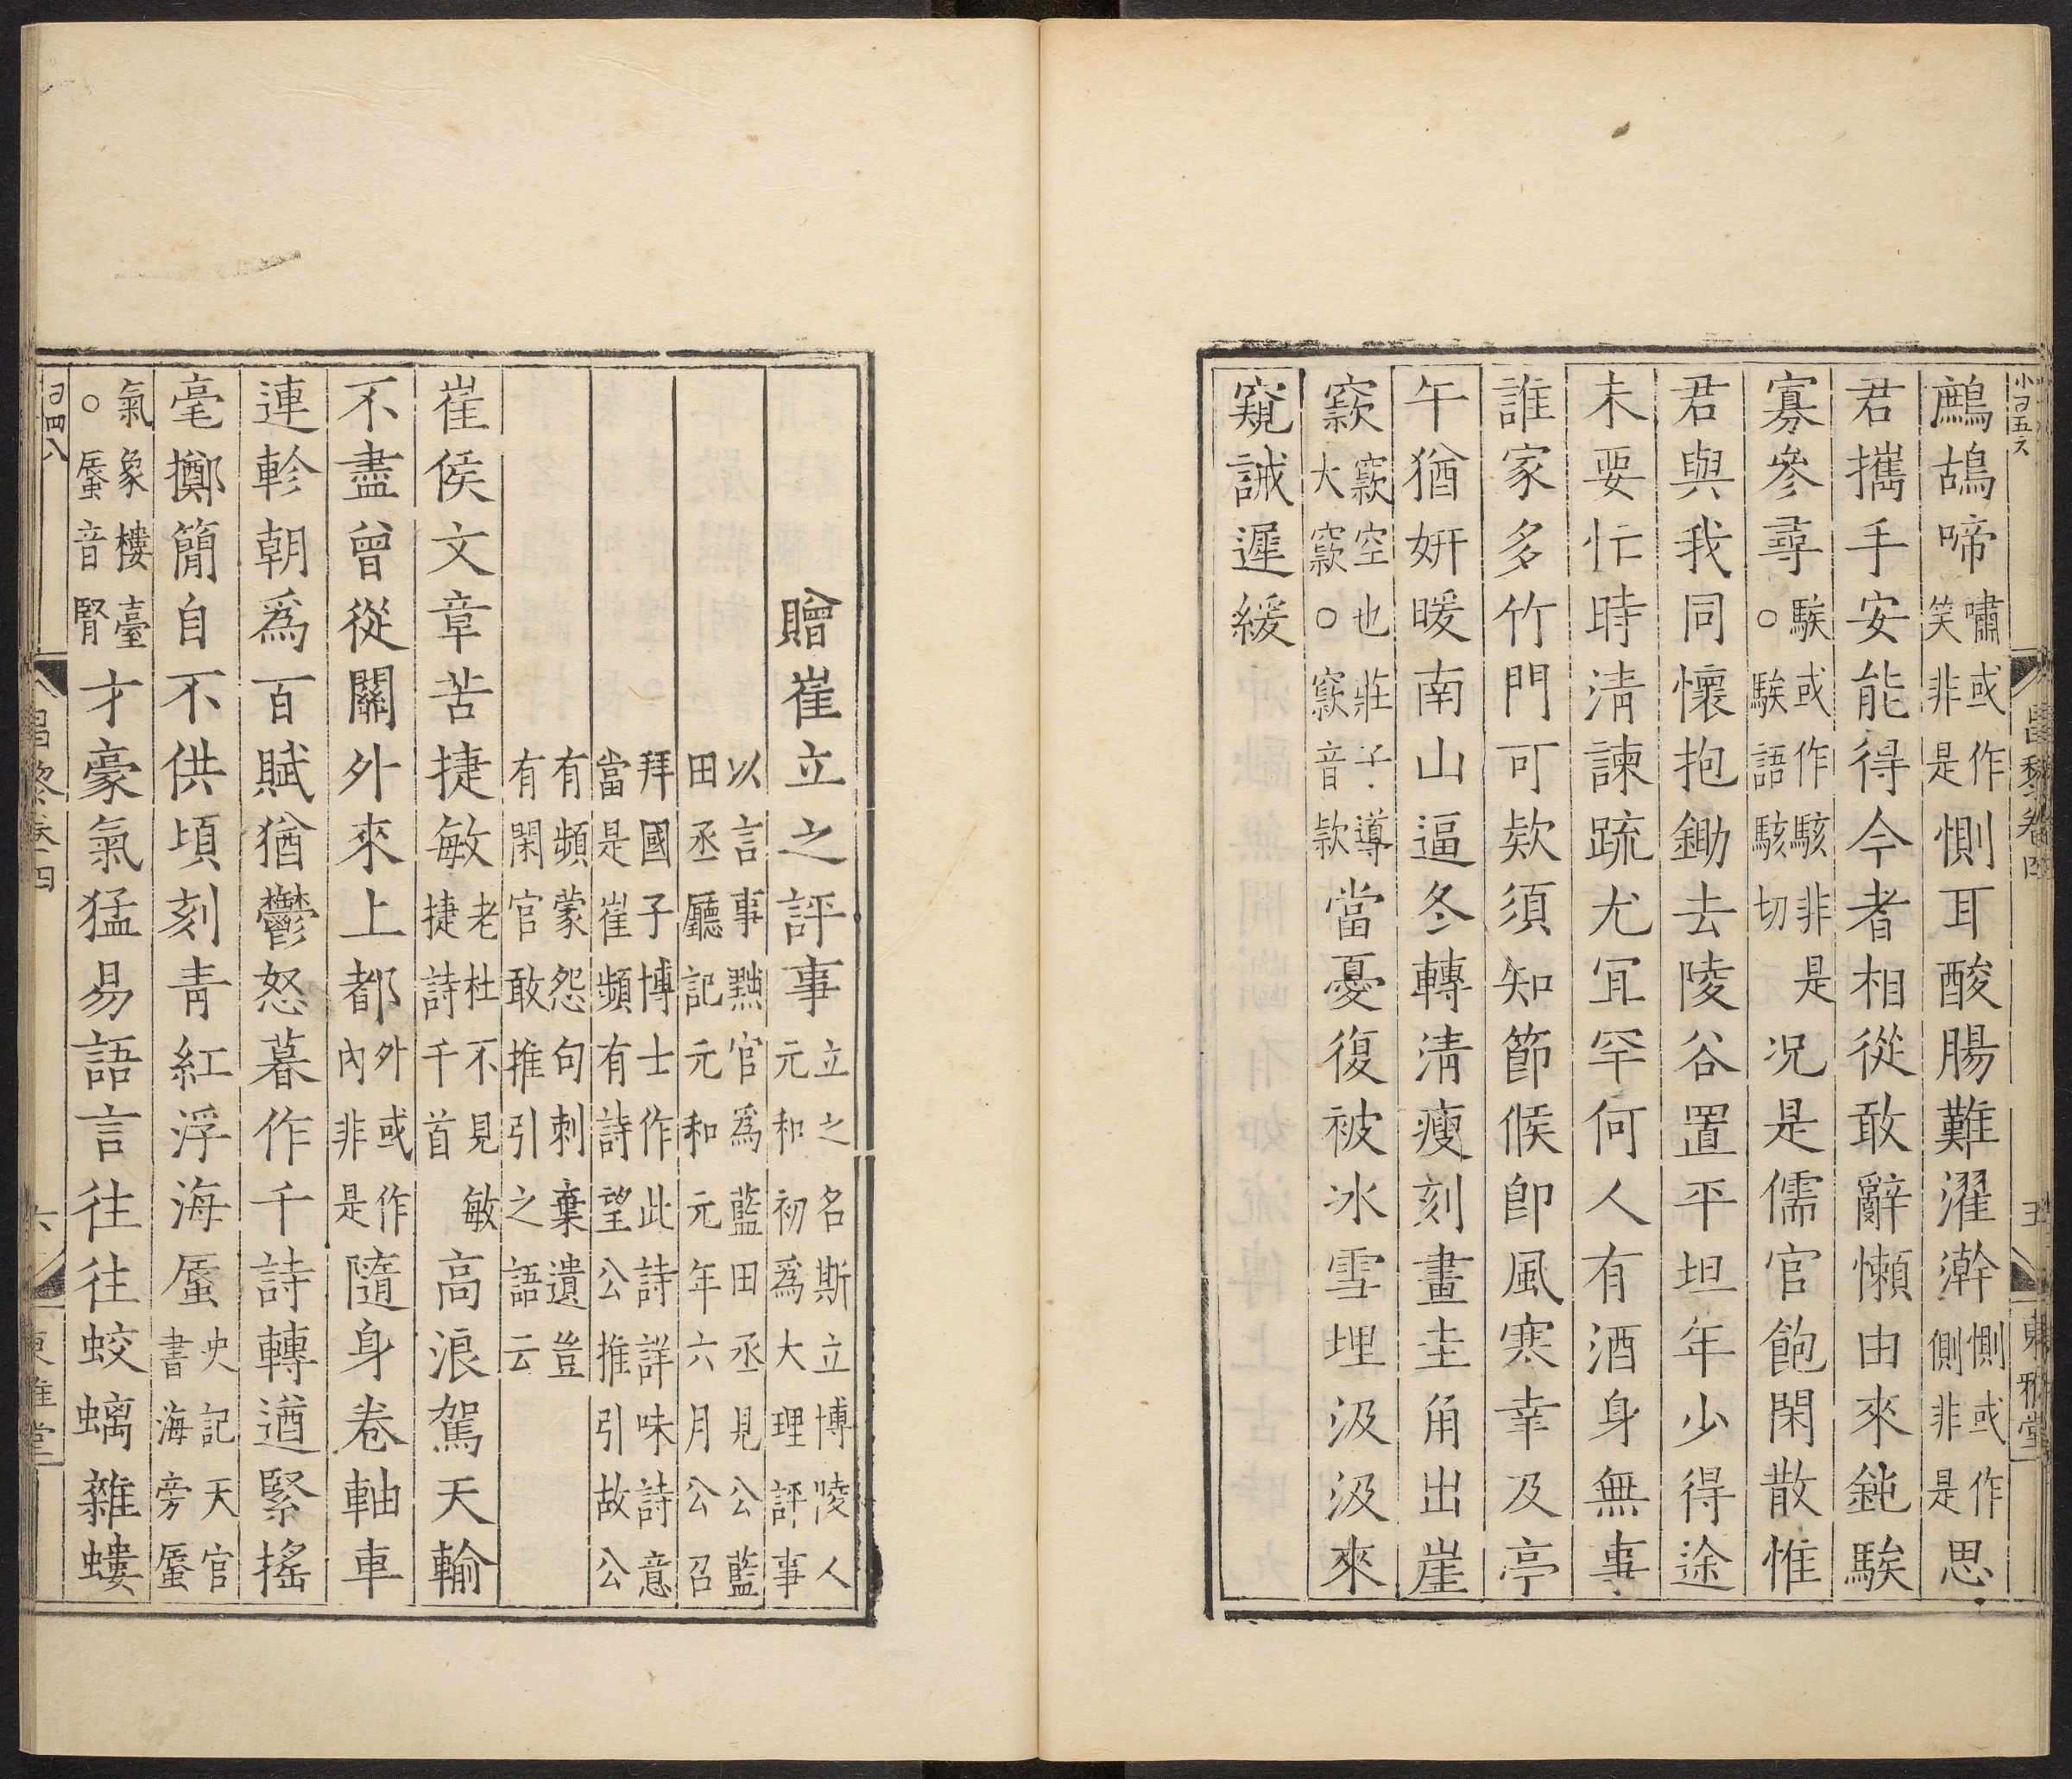 昌黎卷四 五 東雅堂
鷓鴣啼嘯或作笑非是惻耳酸腸難濯澣惻或作側非是思
君攜手安能得今者相從敢辭懶由來鈍騃
寡參尋騃或作駭非是○騃語駭切況是儒官飽閑散惟
君與我同懷抱鋤去陵谷置平坦年少得途
未要忙時清諫疏尤宜罕何人有酒身無事
誰家多竹門可欵須知節候卽風寒幸及亭
午猶妍暖南山逼冬轉清瘦刻畫圭角出崖
窾窾空也莊子導大窾○窾音欵當憂復被冰雪埋汲汲來
窺誡遲緩
贈崔立之評事立之名斯立博陵人元和初爲大理評事
以言事黜官爲藍田丞見公藍田丞廳記元和元年六月公召
拜國子博士作此詩詳味詩意當是崔頻有詩望公推引故公
有頻蒙怨句刺棄遺豈有閑官敢推引之語云
崔侯文章苦捷敏老杜不見敏捷詩千首高浪駕天輸
不盡曾從關外來上都外或作內非是隨身卷軸車
連軫朝爲百賦猶鬱怒暮作千詩轉遒緊搖
毫擲簡自不供頃刻青紅浮海蜃史記天官書海旁蜃
氣象樓臺○蜃音腎才豪氣猛易語言往往蛟螭雜螻
昌黎卷四 六 東雅堂